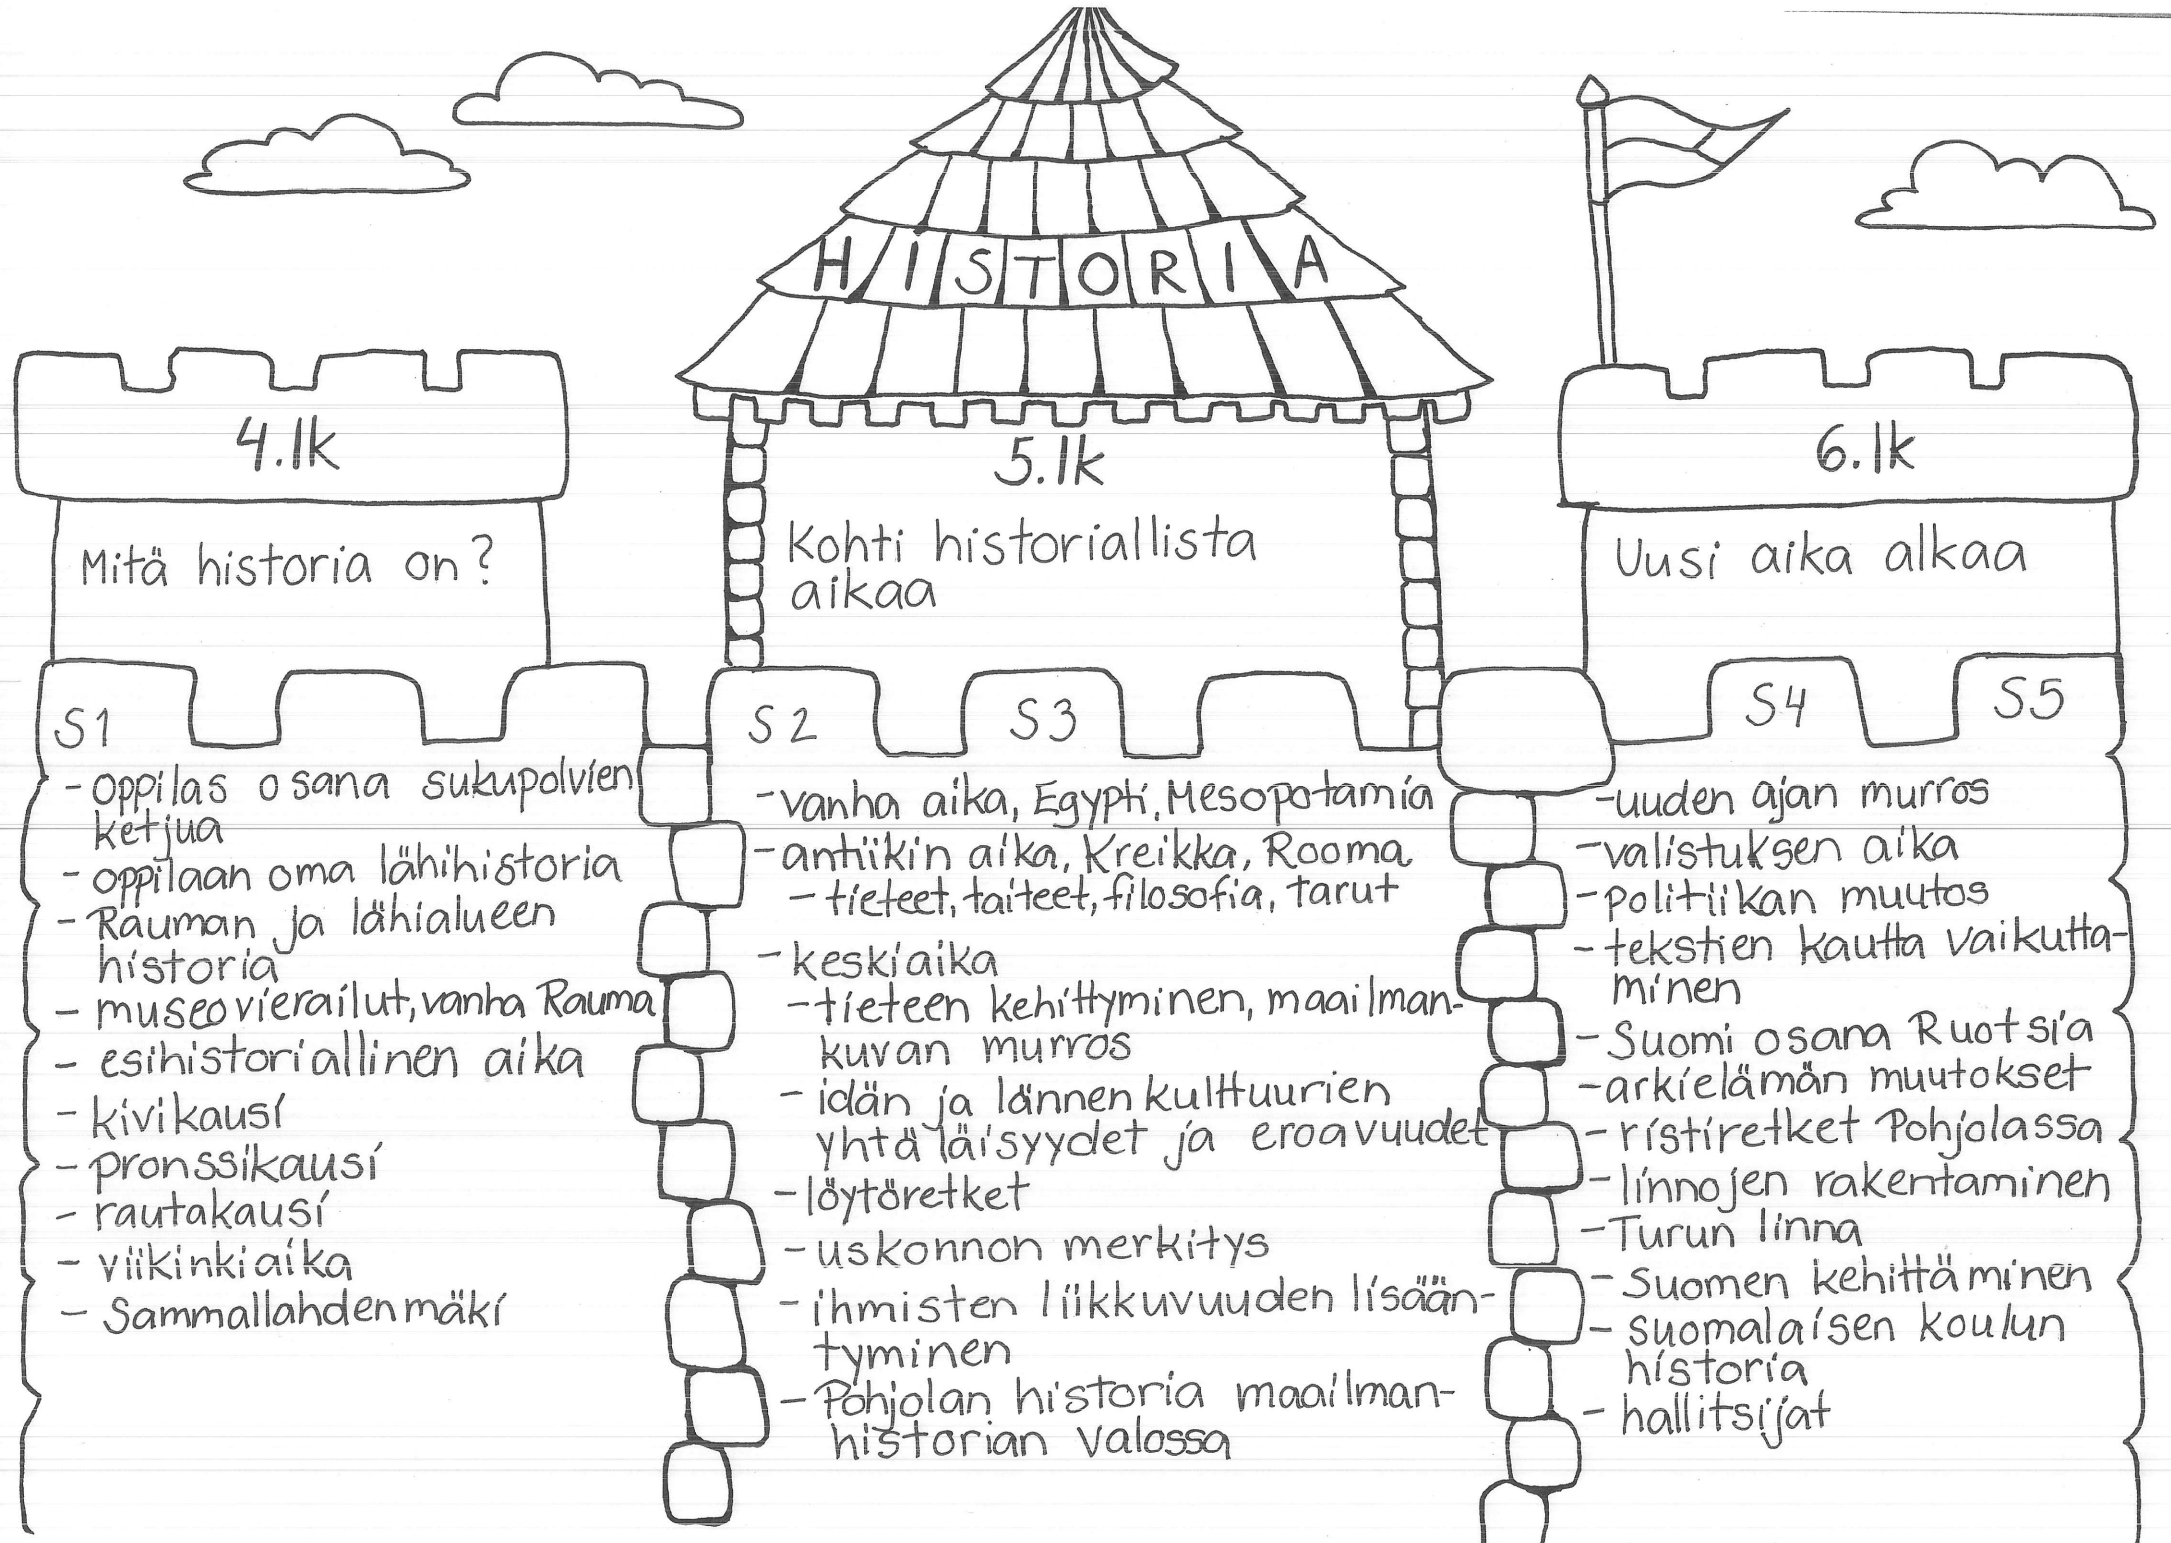 HISTORIA
4.lk
Mitä historia on?
S1
- oppilas osana sukupolvien
ketjua
- oppilaan oma lähihistoria
- Rauman ja lähialueen
historia
- museovierailut, vanha Rauma
- esihistoriallinen aika
- kivikausi
- pronssikausi
- rautakausi
- viikinkiaika
- Sammallahdenmäki
5.lk
Kohti historiallista
aikaa
S2 S3
- vanha aika, Egypti, Mesopotamia
- antiikin aika, Kreikka, Rooma
- tieteet, taiteet, filosofia, tarut
- keskiaika
- tieteen kehittyminen, maailman-
kuvan murros
- idän ja lännen kulttuurien
yhtäläisyydet ja eroavuudet
- löytöretket
- uskonnon merkitys
- ihmisten liikkuvuuden lisään-
tyminen
- Pohjolan historia maailman-
historian valossa
6.lk
Uusi aika alkaa
S4 S5
- uuden ajan murros
- valistuksen aika
- politiikan muutos
- tekstien kautta vaikutta-
minen
- Suomi osana Ruotsia
- arkielämän muutokset
- ristiretket Pohjolassa
- linnojen rakentaminen
- Turun linna
- Suomen kehittäminen
- suomalaisen koulun
historia
- hallitsijat